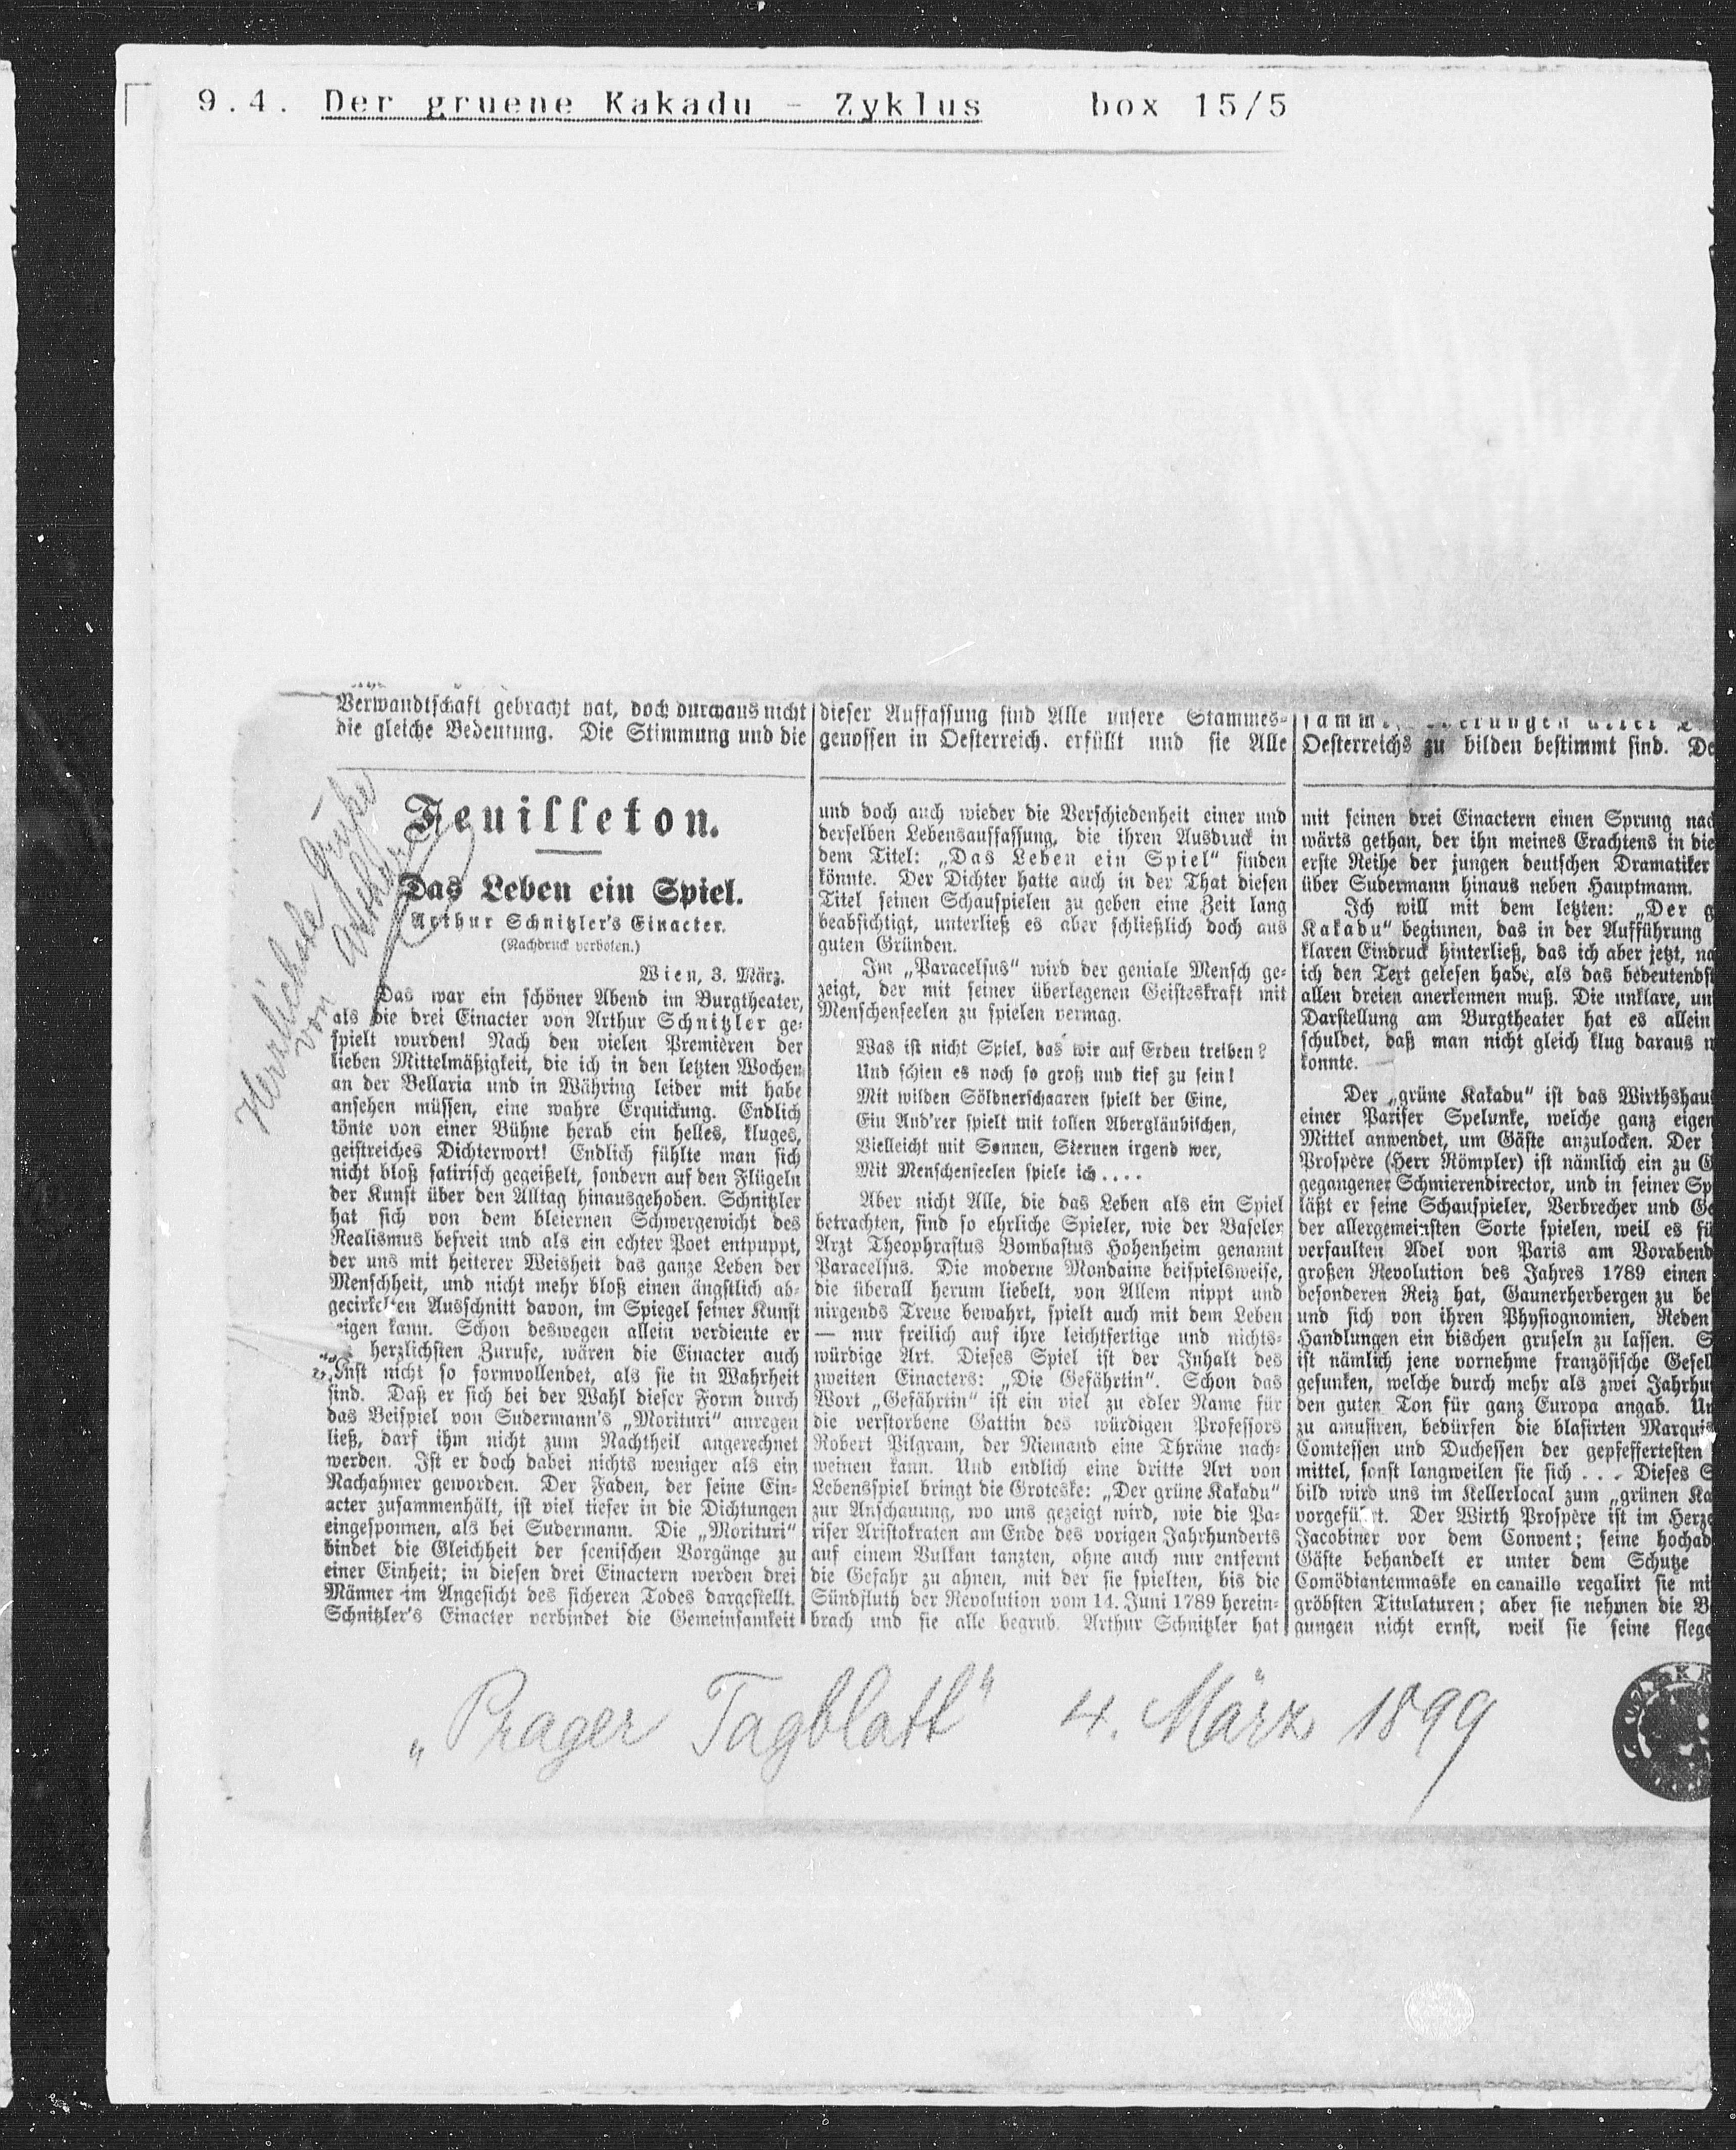 9.4. Der gruene Kakadu - Zyklus box 15/5
Verwandtschaft gebracht hat, doch durchaus nicht
die gleiche Bedeutung. Die Stimmung und die
dieser Auffassung sind Alle unsere Stammes-
genossen in Oesterreich. erfüllt und sie Alle
Oesterreichs zu bilden bestimmt sind. De
Herzlichste Grüße
von
Feuilleton.
Das Leben ein Spiel.
Arthur Schnitzler's Einacter.
(Nachdruck verboten.)
Wien, 3. März.
Das war ein schöner Abend im Burgtheater,
als die drei Einacter von Arthur Schnitzler ge-
spielt wurden! Nach den vielen Premièren der
lieben Mittelmäßigkeit, die ich in den letzten Wochen
an der Bellaria und in Währing leider mit habe
ansehen müssen, eine wahre Erquickung. Endlich
tönte von einer Bühne herab ein helles, kluges,
geistreiches Dichterwort! Endlich fühlte man sich
nicht bloß satirisch gegeißelt, sondern auf den Flügeln
der Kunst über den Alltag hinausgehoben. Schnitzler
hat sich von dem bleiernen Schwergewicht des
Realismus befreit und als ein echter Poet entpuppt,
der uns mit heiterer Weisheit das ganze Leben der
Menschheit, und nicht mehr bloß einen ängstlich ab-
gecirkelten Ausschnitt davon, im Spiegel seiner Kunst
eigen kann. Schon deswegen allein verdiente er
herzlichsten Zurufe, wären die Einacter auch
nicht so formvollendet, als sie in Wahrheit
sind. Daß er sich bei der Wahl dieser Form durch
das Beispiel von Sudermann's „Morituri" anregen
ließ, darf ihm nicht zum Nachtheil angerechnet
werden. Ist er doch dabei nichts weniger als ein
Nachahmer geworden. Der Faden, der seine Ein-
acter zusammenhält, ist viel tiefer in die Dichtungen
eingesponnen, als bei Sudermann. Die „Morituri"
bindet die Gleichheit der scenischen Vorgänge zu
einer Einheit; in diesen drei Einactern werden drei
Männer im Angesicht des sicheren Todes dargestellt.
Schnitzler's Einacter verbindet die Gemeinsamkeit
und doch auch wieder die Verschiedenheit einer und
derselben Lebensauffassung, die ihren Ausdruck in
dem Titel: „Das Leben ein Spiel" finden
könnte. Der Dichter hatte auch in der That diesen
Titel seinen Schauspielen zu geben eine Zeit lang
beabsichtigt, unterließ es aber schließlich doch aus
guten Gründen.
Im „Paracelsus" wird der geniale Mensch ge-
zeigt, der mit seiner überlegenen Geisteskraft mit
Menschenseelen zu spielen vermag.
Was ist nicht Spiel, das wir auf Erden treiben?
Und schien es noch so groß und tief zu sein!
Mit wilden Söldnerschaaren spielt der Eine,
Ein And'rer spielt mit tollen Abergläubischen,
Vielleicht mit Sonnen, Sternen irgend wer,
Mit Menschenseelen spiele ich....
Aber nicht Alle, die das Leben als ein Spiel
betrachten, sind so ehrliche Spieler, wie der Baseler
Arzt Theophrastus Bombastus Hohenheim genannt
Paracelsus. Die moderne Mondaine beispielsweise,
die überall herum liebelt, von Allem nippt und
nirgends Treue bewahrt, spielt auch mit dem Leben
— nur freilich auf ihre leichtfertige und nichts-
würdige Art. Dieses Spiel ist der Inhalt des
zweiten Einacters: „Die Gefährtin". Schon das
Wort „Gefährtin" ist ein viel zu edler Name für
die verstorbene Gattin des würdigen Professors
Robert Pilgram, der Niemand eine Thräne nach-
weinen kann. Und endlich eine dritte Art von
Lebensspiel bringt die Groteske: „Der grüne Kakadu"
zur Anschauung, wo uns gezeigt wird, wie die Pa-
riser Aristokraten am Ende des vorigen Jahrhunderts
auf einem Vulkan tanzten, ohne auch nur entfernt
die Gefahr zu ahnen, mit der sie spielten, bis die
Sündfluth der Revolution vom 14. Juni 1789 herein-
brach und sie alle begrub. Arthur Schnitzler hat
mit seinen drei Einactern einen Sprung nac
wärts gethan, der ihn meines Erachtens in die
erste Reihe der jungen deutschen Dramatiker
über Sudermann hinaus neben Hauptmann.
Ich will mit dem letzten: „Der g
Kakadu" beginnen, das in der Aufführung
klaren Eindruck hinterließ, das ich aber jetzt, na
ich den Text gelesen habe, als das bedeutendst
allen dreien anerkennen muß. Die unklare, un
Darstellung am Burgtheater hat es allein
schuldet, daß man nicht gleich klug daraus w
konnte.
Der „grüne Kakadu" ist das Wirthshau
einer Pariser Spelunke, welche ganz eigen
Mittel anwendet, um Gäste anzulocken. Der
Prospère (Herr Römpler) ist nämlich ein zu G
gegangener Schmierendirector, und in seiner Sp
läßt er seine Schauspieler, Verbrecher und Ge
der allergemeinsten Sorte spielen, weil es fü
verfaulten Adel von Paris am Vorabend
großen Revolution des Jahres 1789 einen
besonderen Reiz hat, Gaunerherbergen zu be
und sich von ihren Physiognomien, Reden
Handlungen ein bischen gruseln zu lassen. S
ist nämlich jene vornehme französische Gesell
gesunken, welche durch mehr als zwei Jahrhu
den guten Ton für ganz Europa angab. Un
zu amusiren, bedürfen die blasirten Marquis
Comtessen und Duchessen der gepfeffertesten
mittel, sonst langweilen sie sich ... Dieses S
bild wird uns im Kellerlocal zum „grünen Ka
vorgeführt. Der Wirth Prospère ist im Herze
Jacobiner vor dem Convent; seine hochad
Gäste behandelt er unter dem Schutze
Comödiantenmaske en canaille regalirt sie mi
gröbsten Titulaturen; aber sie nehmen die B
gungen nicht ernst, weil sie seine flege
„Prager Tagblatt" 4. März 1899